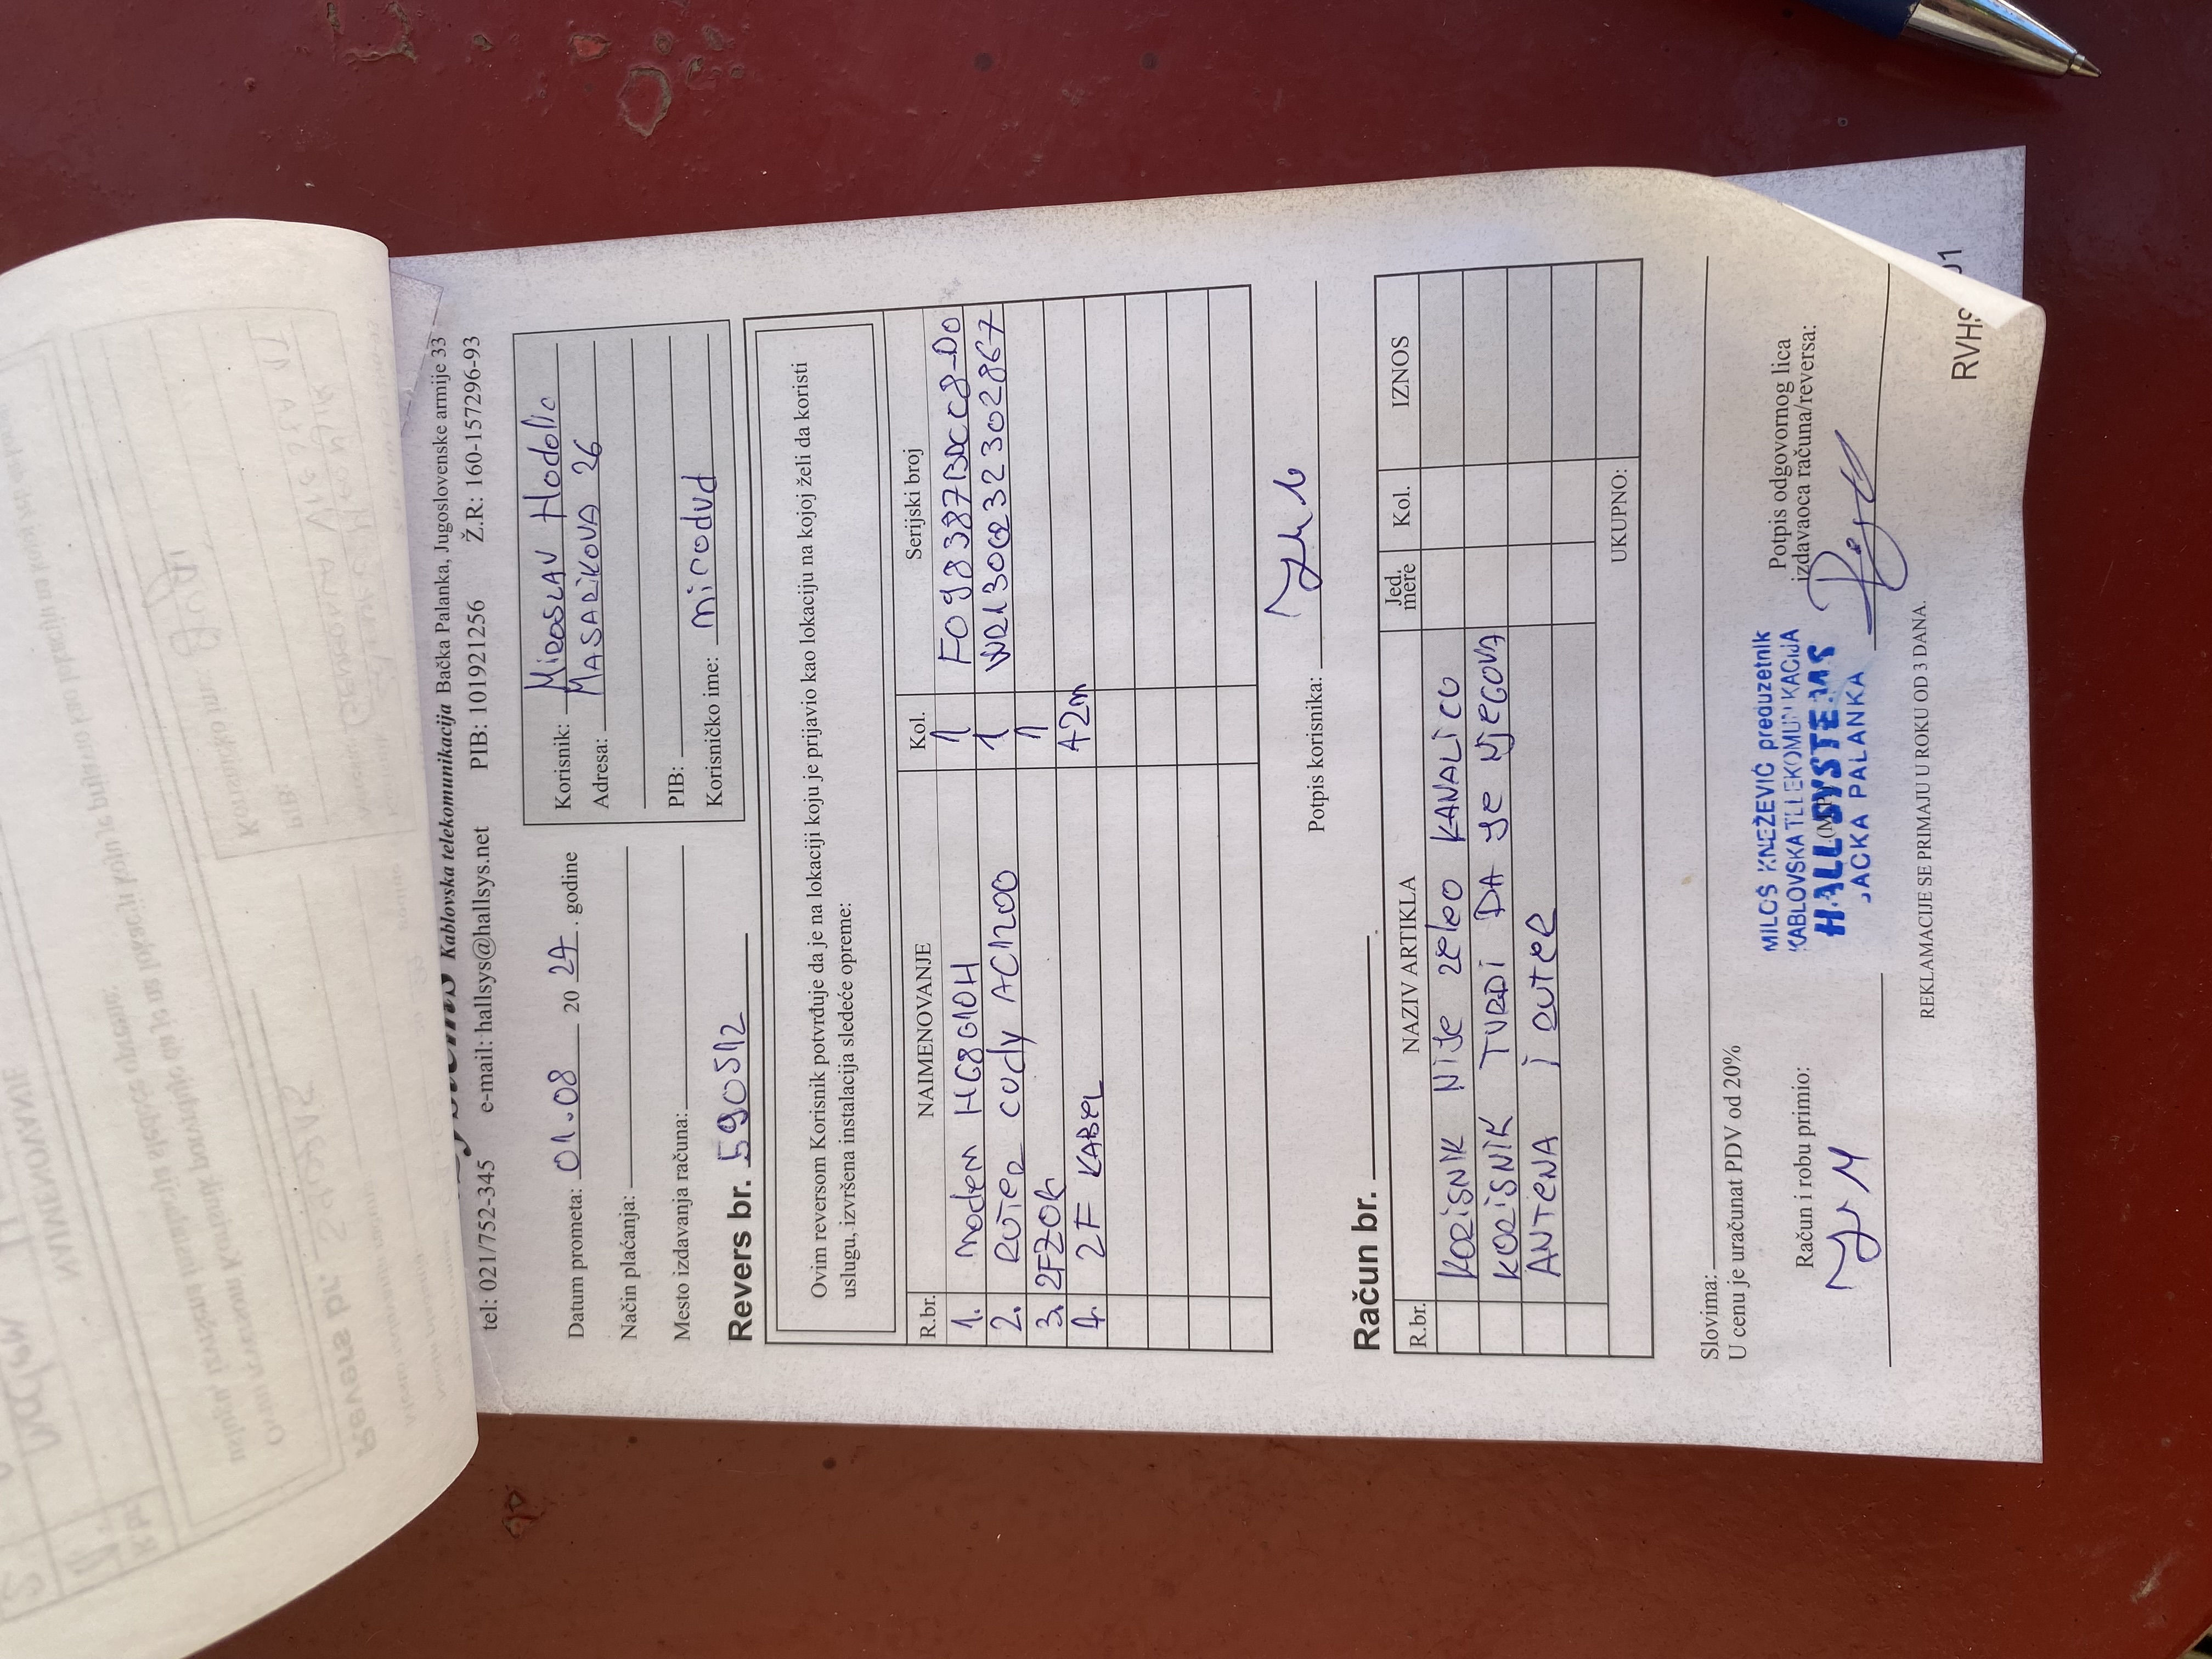 Kablovska telekomunikacija Bačka Palanka, Jugoslovenske armije 33
tel: 021/752-345 e-mail: hallsys@hallsys.net PIB: 101921256 Ž.R: 160-157296-93
Datum prometa: 01.08 2024. godine
Način plaćanja:
Mesto izdavanja računa:
Korisnik: Miroslav Hodolic
Adresa: MASARIKOVA 26
PIB:
Korisničko ime: mirodud
Revers br. 590512
Ovim reversom Korisnik potvrđuje da je na lokaciji koju je prijavio kao lokaciju na kojoj želi da koristi
uslugu, izvršena instalacija sledeće opreme:
R.br. NAIMENOVANJE Kol. Serijski broj
1. modem HG8010H 1
2. RUTER cudy AC1200 1
3. 2FZOK 1
4. 2F KABEL 42m
Potpis korisnika:
Račun br.
R.br. NAZIV ARTIKLA Jed. mere Kol. IZNOS
KORISNIK NIJE ZELEO KANALICU
KORISNIK TVRDI DA JE NJEGOVA
ANTENA I RUTER
UKUPNO:
Slovima:
U cenu je uračunat PDV od 20%
Račun i robu primio:
(M.P.)
MILOŠ KNEŽEVIĆ preduzetnik
KABLOVSKA TELEKOMUNIKACIJA
HALL SYSTEMS
BAČKA PALANKA
Potpis odgovornog lica
izdavaoca računa/reversa:
REKLAMACIJE SE PRIMAJU U ROKU OD 3 DANA.